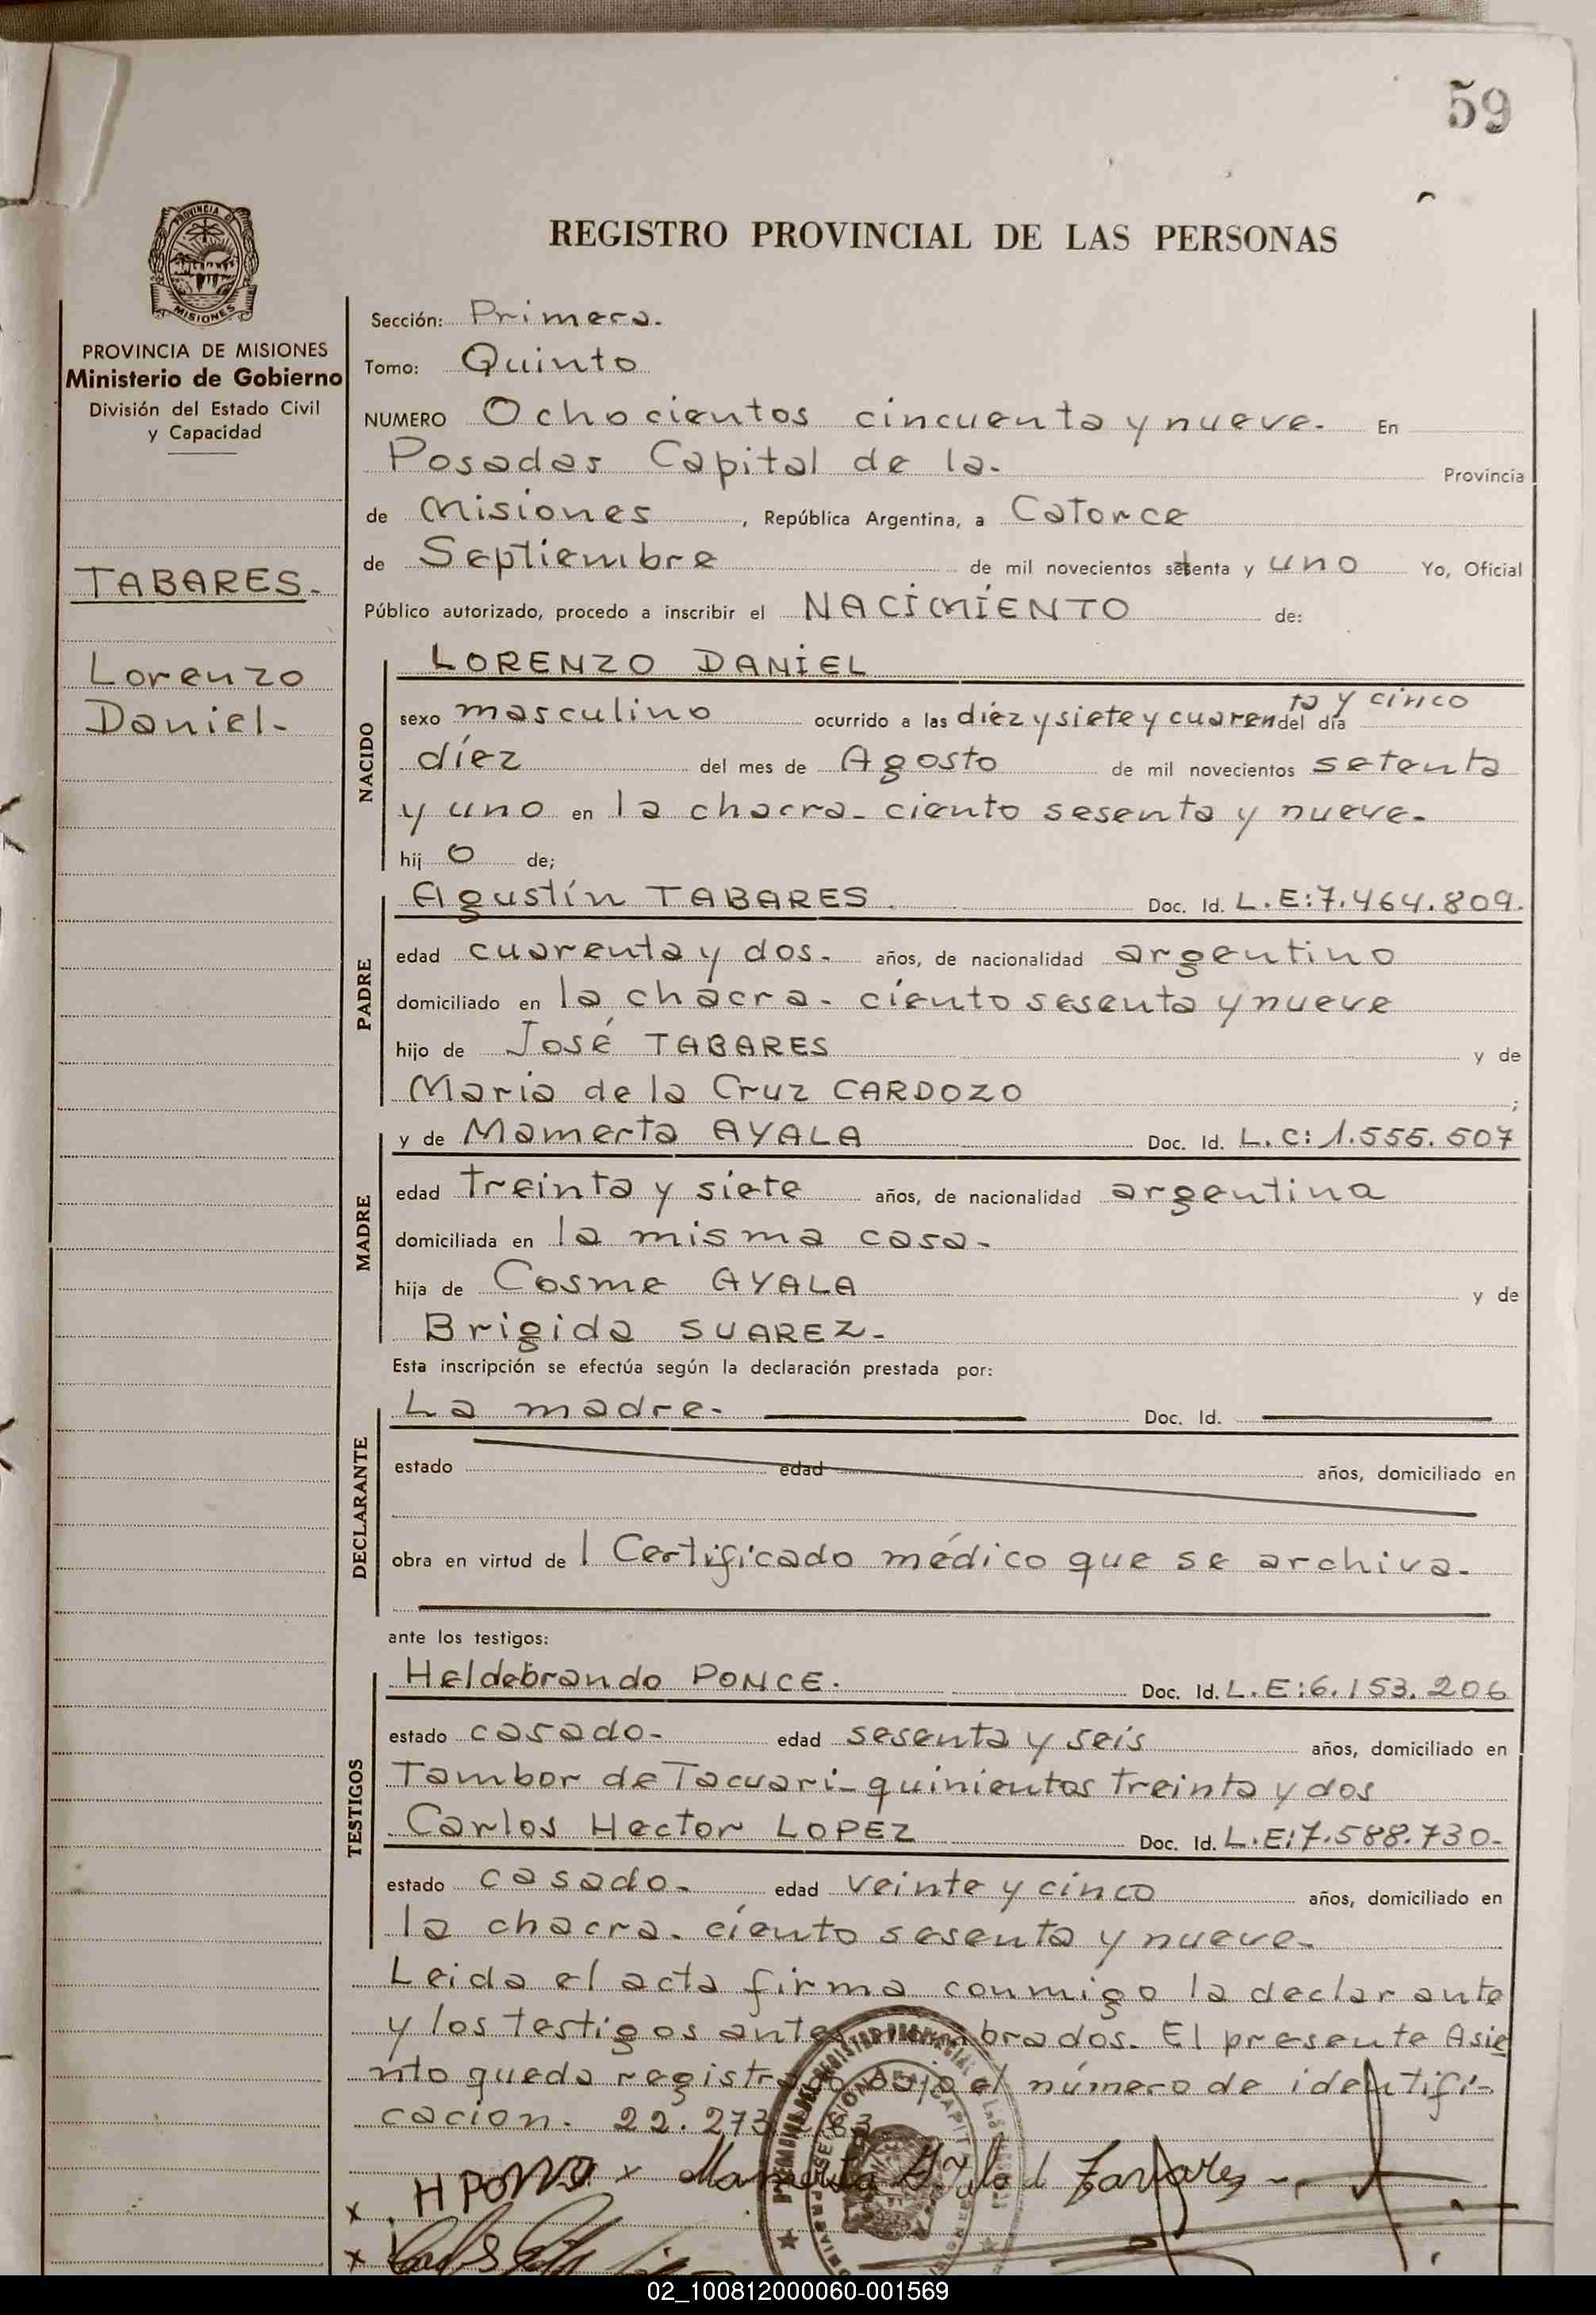 59
REGISTRO PROVINCIAL DE LAS PERSONAS
PROVINCIA DE MISIONES
Ministerio de Gobierno
División del Estado Civil
y Capacidad
TABARES.
Lorenzo
Daniel-
Sección: Primera.
Tomo: Quinto
NUMERO Ochocientos cincuenta y nueve. En
Posadas Capital de la. Provincia
de Misiones, República Argentina, a Catorce
de Septiembre de mil novecientos setenta y uno Yo, Oficial
Público autorizado, procedo a inscribir el NACIMIENTO de:
NACIDO
LORENZO DANIEL
sexo masculino ocurrido a las diez y siete y cuarenta y cinco del día
díez del mes de Agosto de mil novecientos setenta
y uno en la chacra- ciento sesenta y nueve.
hij o de;
PADRE
Agustín TABARES. Doc. Id. L.E:7.464.809.
edad cuarenta y dos. años, de nacionalidad argentino
domiciliado en la chacra- ciento sesenta y nueve
hijo de José TABARES y de
Maria de la Cruz CARDOZO ;
MADRE
y de Mamerta AYALA Doc. Id. L.C:1.555.507
edad treinta y siete años, de nacionalidad argentina
domiciliada en la misma casa-
hija de Cosme AYALA y de
Brigida SUAREZ-
Esta inscripción se efectúa según la declaración prestada por:
DECLARANTE
La madre. Doc. Id.
estado edad años, domiciliado en
obra en virtud de l Certificado médico que se archiva.
ante los testigos:
TESTIGOS
Heldebrando PONCE. Doc. Id. L.E:6.153.206
estado casado- edad sesenta y seis años, domiciliado en
Tambor de Tacuari- quinientos treinta y dos
Carlos Hector LOPEZ Doc. Id. L.E:7.588.730-
estado casado- edad veinte y cinco años, domiciliado en
la chacra- ciento sesenta y nueve-
Leida el acta firma conmigo la declarante
y los testigos antes brados. El presente Asie
nto queda registrado bajo el número de identifi-
cacion. 22.273
H PONCE x Mamerta Ayala d Tavares
02_100812000060-001569